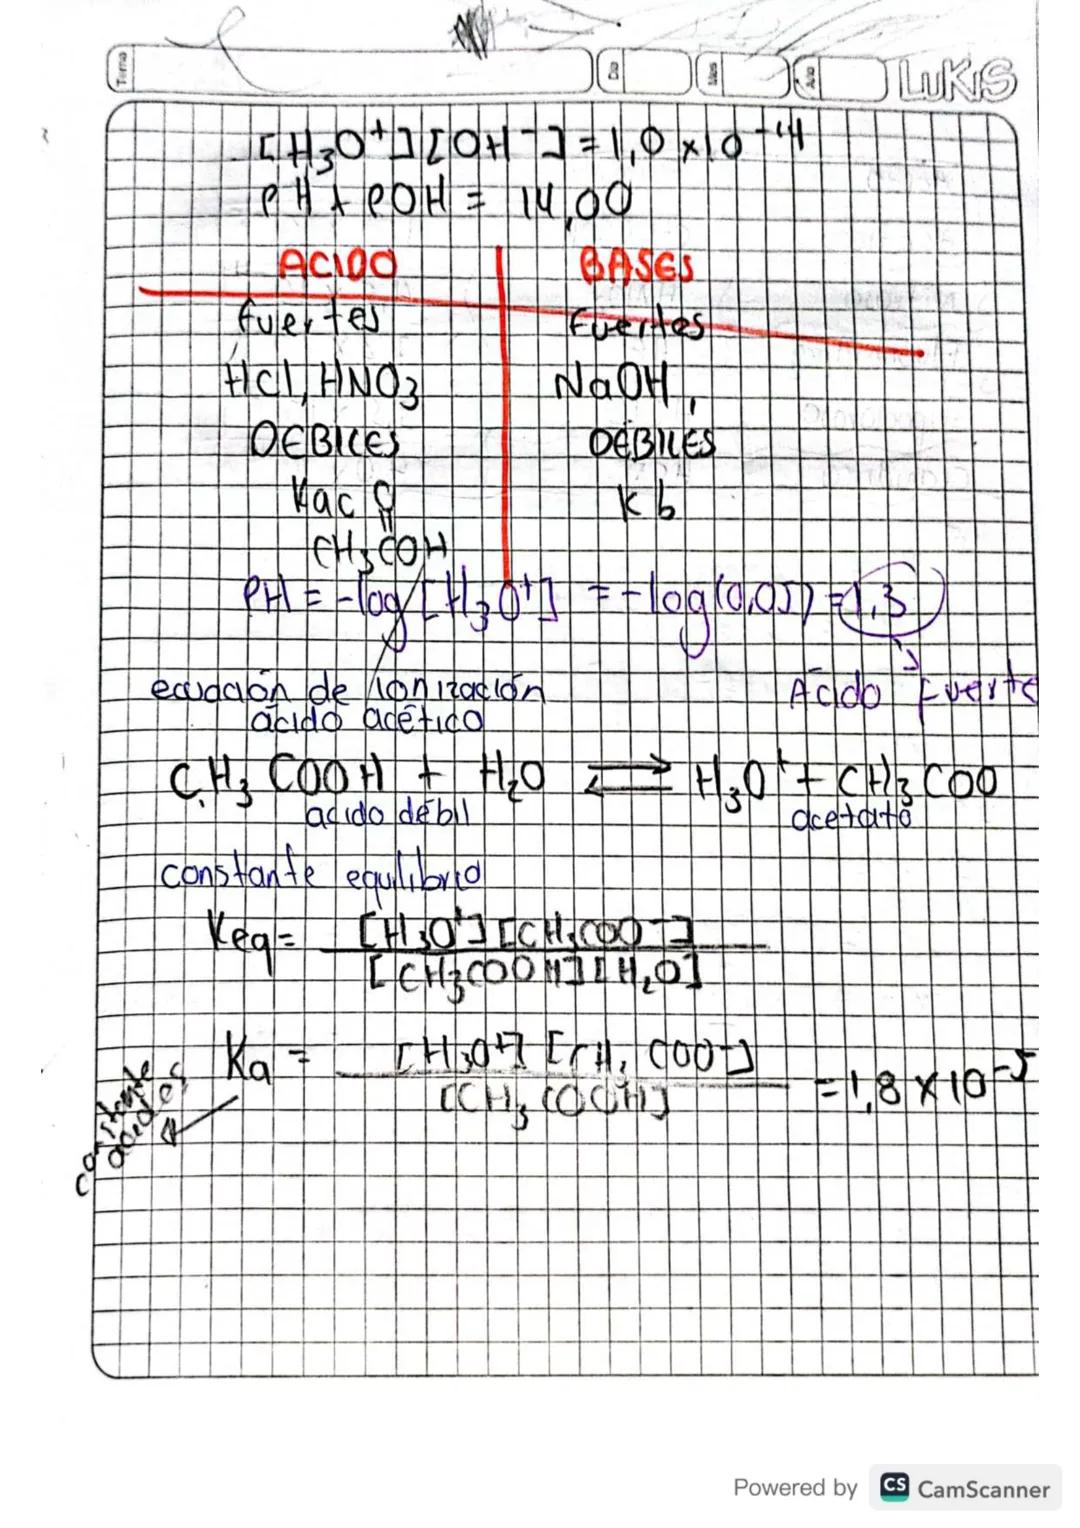 Tema Día Mes Año LUKIS
[H₃O⁺][OH⁻] = 1,0 x 10⁻¹⁴
PH + POH = 14,00
ACIDO BASES
fuertes Fuertes
HCl, HNO3 NaOH,
DEBILES DÉBILES
Kac O
CH₃COH Kb
PH = -log [H₃O⁺] = -log(0,05) = 1,3
ecuación de ionización Acido Fuerte
ácido acético
CH₃COOH + H₂O ⇌ H₃O⁺ + CH₃COO
acido débil acetato
constante equilibrio
Keq = [H₃O⁺][CH₃COO⁻]
[CH₃COOH][H₂O]
Ka = [H₃O⁺] [CH₃COO⁻] = 1,8 x 10⁻⁵
[CH₃COOH]
constante
acidez
Powered by CS CamScanner